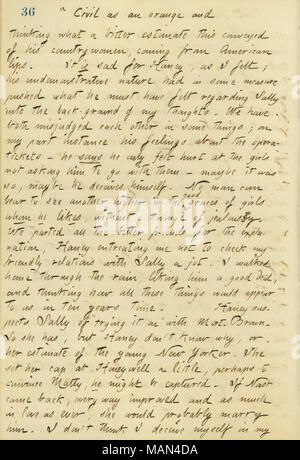 36
" Civil as an orange and
thinking what a bitter estimate this conveyed
of his countrywomen, coming from American
lips. It is sad for Haney, as I felt;
his undemonstrative nature had in some measure
pushed what he must have felt regarding Sally
into the back-ground of my thoughts. We have
both misjudged each other in some things; on
my part instance his feelings about the opera-
tickets — he says he only felt hurt at the girls
not asking him to go with them — maybe it was
so, maybe he deceives himself. No man can
bear to see another higher in the good graces of girls
when he likes, without a twinge of jealousy.
We parted all the better friends for the expla-
nation, Haney entreating me not to check my
friendly relations with Sally a jot. I walked
home through the rain, liking him a good deal,
and thinking how all these things would appear
to us in ten years time. Haney sus-
pects Sally of trying it on with Mort. Brown.
So she has, but Haney don't know why, or
her estimate of the young New Yorker. She
set her cap at Haney well a little, perhaps to
convince Matty, he might be captured. If Nast
came back, every way improved and as much
in love as ever, she would probably marry
him. I don't think I deceive myself in my
alamy
Image ID: MAN4DA
www.alamy.com